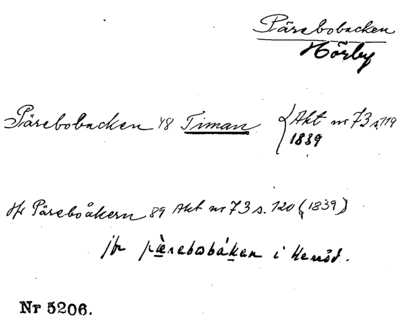 Pärebobacken
Hörby
Pärebobacken 48 Timan { Akt nr 73 s. 119
1839
Jfr Päreboåkern 89 Akt nr 73 s. 120 (1839)
jfr pä̀rebobáken i Kenröd.
Nr 5206.